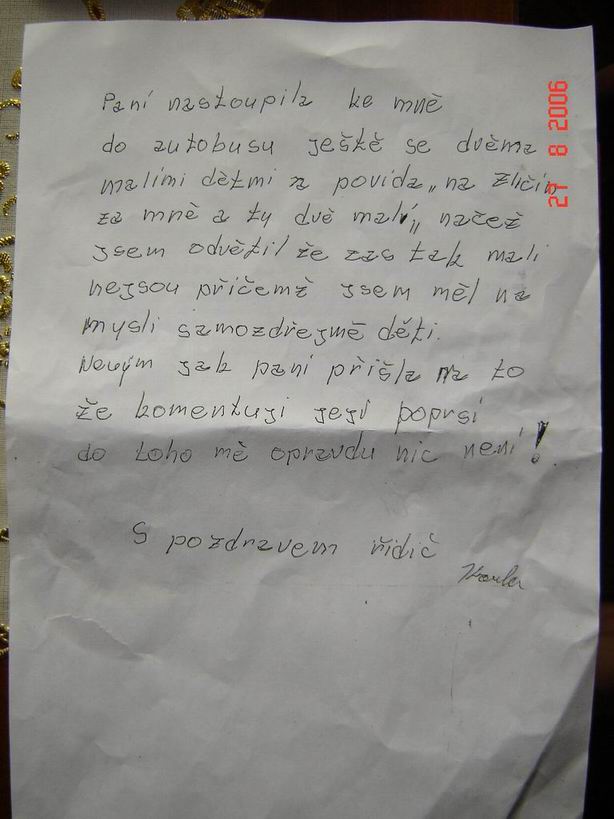 Paní nastoupila ke mně
do autobusu ještě se dvěma
malími dětmi a povida „na Zličín
za mně a ty dvě malí„ načež
jsem odvětil že zas tak mali
nejsou přičemž jsem měl na
mysli samozdřejmě děti.
Nevým jak paní přišla na to
že komentuji její poprsí
do toho mě opravdu nic není!
S pozdravem řidič
27 8 2006